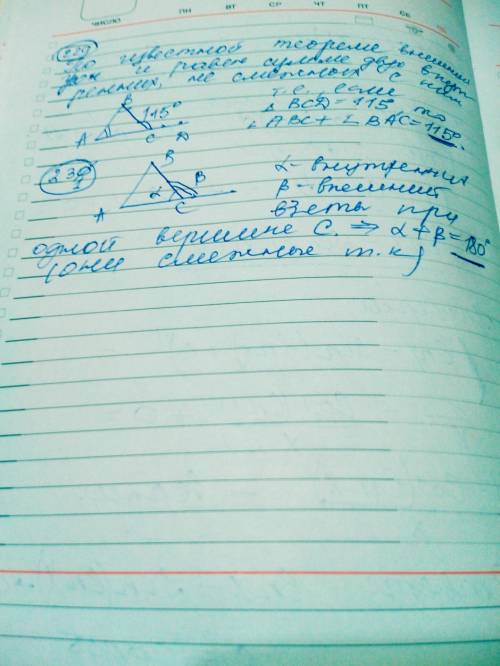 ЧИСЛО ПН ВТ СР ЧТ ПТ СБ
229
По известной теореме внешний
равен сумме двух внут
ренних, не смежных с ним
т.е. если
B
115° ∠BCD = 115° то
A C D ∠ABC + ∠BAC = 115°.
230
B α - внутренний
α β β - внешний
A C взеты при
одной вершине C. ⇒ α + β = 180°
(они смежные т.к)